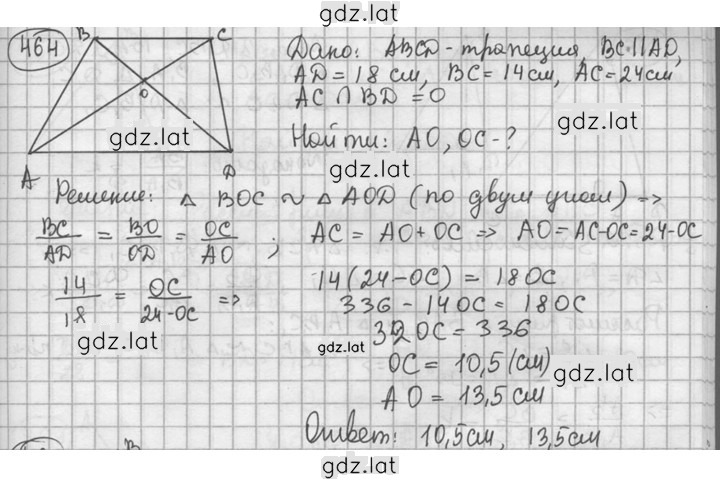 gdz.lat
464
B
C
Дано: ABCD - трапеция, BC || AD,
AD = 18 см, BC = 14 см, AC = 24 см
AC ∩ BD = O
O
gdz.lat
gdz.lat
Найти: AO, OC - ?
gdz.lat
A
D
Решение: △ BOC ~ △ AOD (по двум углам) =>
BC/AD = BO/OD = OC/AO ; AC = AO + OC => AO = AC-OC = 24-OC
14/18 = OC/24-OC => 14(24-OC) = 18OC
336 - 14OC = 18OC
gdz.lat
32OC = 336
gdz.lat
OC = 10,5 (см)
gdz.lat
AO = 13,5 см
Ответ: 10,5 см, 13,5 см
B
gdz.lat